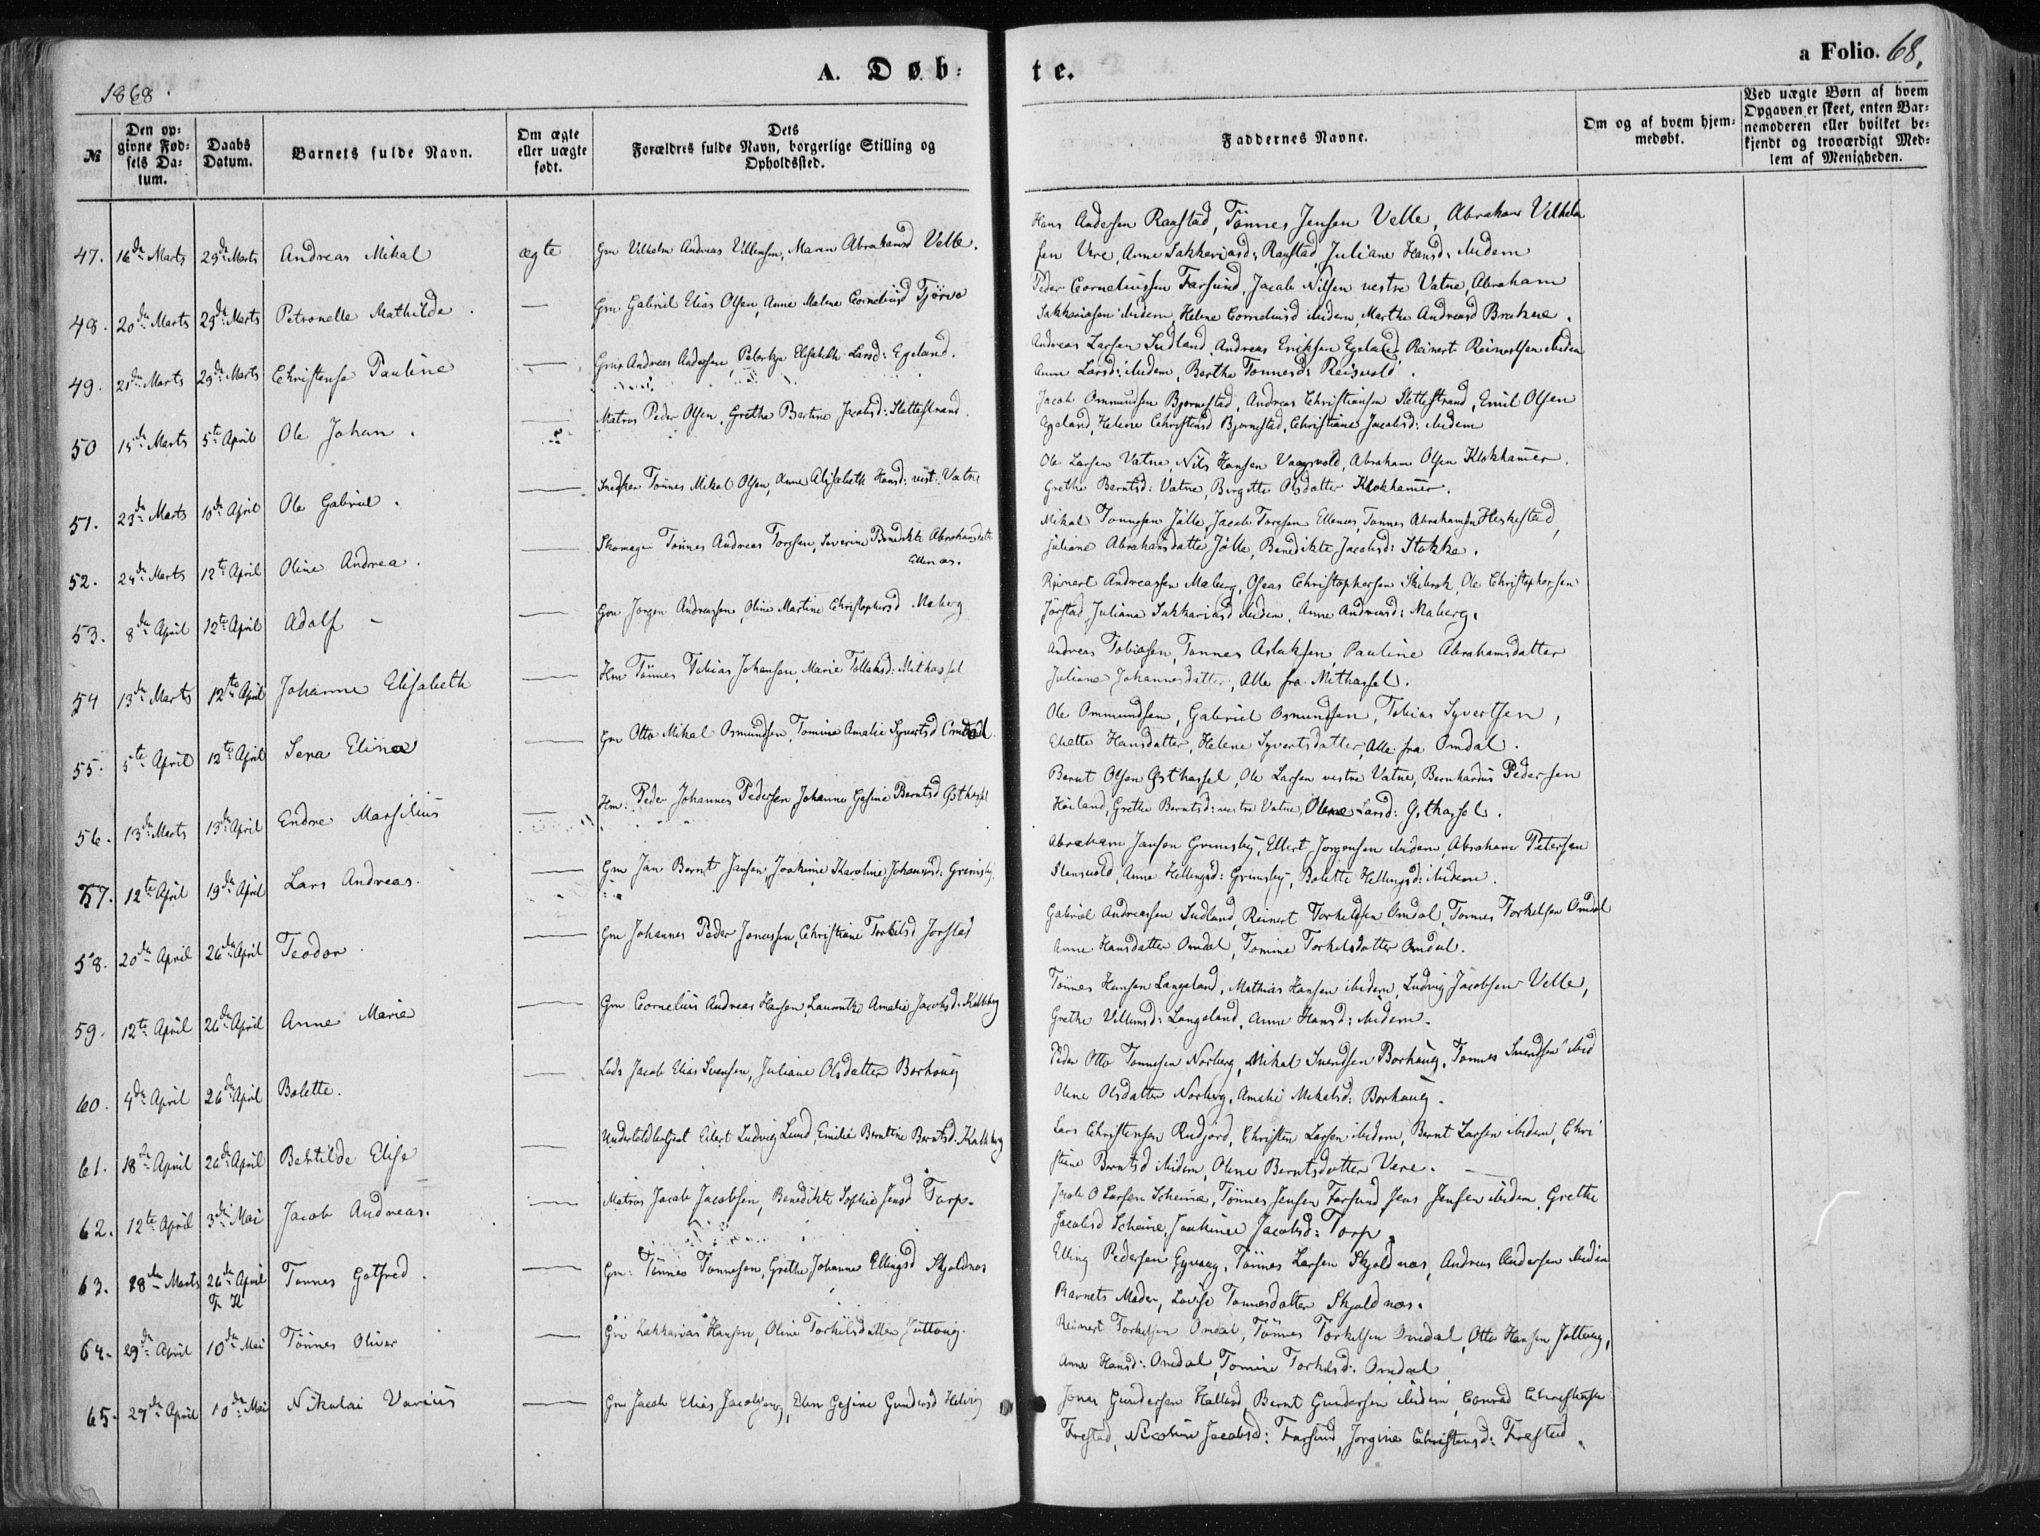 A. Døb: te.
a Folio. 68.
1868.
№
Den op-
givne Fød-
sels Da-
tum.
Daabs
Datum.
Barnets fulde Navn.
Om ægte
eller uægte
født.
Dets
Forældres fulde Navn, borgerlige Stilling og
Opholdssted.
Faddernes Navne.
Om og af hvem hjem-
medøbt.
Ved uægte Børn af hvem
Opgaven er skeet, enten Bar-
nemoderen eller hvilket be-
kjendt og troværdigt Med-
lem af Menigheden.
47. 16de Marts 29de Marts Andreas Mikal ægte Gm Vilhelm Andreas Villumsen, Maren Abrahamsd Velle.
Hans Andersen Ranstad, Tönnes Jensen Velle, Abraham Vilhelm
sen Vere, Anne Sakkeriasd: Ranstad, Juliane Hansd: ibidem
48. 20de Marts 29de Marts Petronelle Mathilde. — Gm. Gabriel Elias Olsen, Anne Malene Corneliusd Tjörve
Peder Corneliussen Farsund, Jacob Nilsen vestre Vatne, Abraham
Sakkariasen ibidem, Helene Corneliusd ibidem, Marthe Andreasd Brekne.
49. 21de Marts 29de Marts Christense Pauline — Andreas Andersen, Elisabeth Larsd: Egeland.
Andreas Larsen Sudland, Andreas Eriksen Egeland, Reinert Reinertsen ibidem
Anne Larsd: ibidem, Berthe Tonnesd: Reisvold.
50 15de Marts 5te April Ole Johan. — Matros Peder Olsen, Grethe Bertine Jacobsd: Slettestrand.
Jacob Ommundsen Bjornestad, Andreas Christiansen Slettestrand, Emil Olsen
Egeland, Helene Christensd Bjornestad, Christiane Jacobsd: ibidem
51. 23de Marts 10de April Ole Gabriel. — Snedker Tönnes Mikal Olsen, Anne Elisabeth Hansd: vest. Vatne
Ole Larsen Vatne, Nils Hansen Vaagsvold, Abraham Olsen Klokhamer.
Grethe Berntsd: Vatne, Birgitte Olsdatter Klokhamer.
52. 24de Marts 12te April Oline Andrea. — Skomager Tönnes Andreas Torsen, Severine Benedikte Abrahamsdatter
Ellenæs.
Mikal Tonnesen Jölle, Jacob Torsen Ellenæs, Tonnes Abrahamsen Heskestad,
Juliane Abrahamsdatter Jölle, Benedikte Jacobsd: Stokke.
53. 8de April 12te April Adolf — Gm Jorgen Andreassen, Oline Martine Christophersd Maberg
Reinert Andreassen Maberg, Oseas Christophersen Skibrok, Ole Christophersen
Jörstad, Juliane Sakkariasd ibidem, Anne Andreasd: Maberg.
54 13de Marts 12te April Johanne Elisabeth — Hm Tönnes Tobias Johansen, Marie Tollaksd: Mithassel
Andreas Tobiasen, Tonnes Aslaksen, Pauline Abrahamsdatter
Juliane Johannesdatter, Alle fra Mithassel.
55. 5te April 12te April Sena Elina — Gm Otto Mikal Osmundsen, Tomine Amalie Syvertsd Omdal.
Ole Ommundsen, Gabriel Osmundsen, Tobias Syvertsen,
Eliette Hansdatter, Helene Syvertsdatter, Alle fra Omdal.
56. 13de Marts 13de April Endre Marsilius — Hm: Peder Johannes Pedersen Johanne Gesine Berntsd Østhassel
Bernt Olsen Østhassel, Ole Larsen vestre Vatne, Bernhardus Pedersen
Höiland, Grethe Berntsd: vestre Vatne, Olene Larsd: Østhassel.
57. 12te April 19de April Lars Andreas. — Gm Jan Bernt Jansen, Joakime Karoline Johannesd: Grimsby.
Abraham Jansen Grimsby, Ellert Jorgensen ibidem, Abraham Petersen
Stensvold, Anne Hellingsd: Grimsby, Bolette Hellingsd: ibidem.
58. 20de April 26de April Teodor. — Gm Johannes Peder Jonassen, Christiane Torkilsd Jörstad
Gabriel Andreassen Sudland, Reinert Torkeldsen Omdal, Tonnes Torkelsen Omdal
Anne Hansdatter Omdal, Tomine Torkelsdatter Omdal.
59. 12te April 26de April Anne Marie — Gm Cornelius Andreas Hansen, Laurentze Amalie Jacobsd: Kalleberg
Tönnes Hansen Langeland, Mathias Hansen ibidem, Ludvig Jacobsen Velle,
Grethe Villumsd: Langeland, Anne Hansd: ibidem.
60. 4de April 26de April Bolette. — Lods Jacob Elias Svensen, Juliane Olsdatter Borhoug
Peder Otto Tonnesen Norberg, Mikal Svendsen Borhaug, Tonnes Svendsen ibid
Olene Olsdatter Norberg, Amalie Mikalsd: Borhaug.
61. 18de April 26de April Bertilde Elise — Undertoldbetjent Eilert Ludvig Lund, Emilie Berntine Berntsd: Kalleberg
Lars Christensen Rudjord, Christen Larsen ibidem, Bernt Larsen ibidem, Chri
stine Berntsd ibidem, Olene Berntsdatter Vere. —
62. 12te April 3de Mai Jacob Andreas. — Matros Jacob Jacobsen, Benedikte Sophie Jensd Torp.
Jacob O Larsen Scheime, Tönnes Jensen Farsund, Jens Jensen ibidem, Grethe
Jacobsd Scheime, Joakime Jacobsd: Torp
63. 28de Marts 26de April F. K Tonnes Gotfred. — Gm: Tönnes Tonnesen, Grethe Johanne Ellingsd Skjoldnæs
Elling Pedersen Eyvaag, Tönnes Larsen Skjoldnæs, Andreas Andersen ibidem
Barnets Moder, Lovise Tonnesdatter Skjoldnæs.
64. 29de April 10de Mai Tönnes Oliver — Gm Zakkarias Hansen, Oline Torkilsdatter Jöttoug.
Reinert Torkelsen Omdal, Tönnes Torkelsen Omdal, Otto Hansen Jottoug,
Anne Hansd: Omdal, Tomine Torkelsd: Omdal
65. 27de April 10de Mai Nikolai Varius — Gm Jacob Elias Jacobsen, Elen Gesine Gundersd Helvig
Jonas Gundersen Halland, Bernt Gundersen ibidem, Conrad Christensen
Frestad, Nicoline Jacobsd: Farsund, Jorgine Christensd: Frestad.